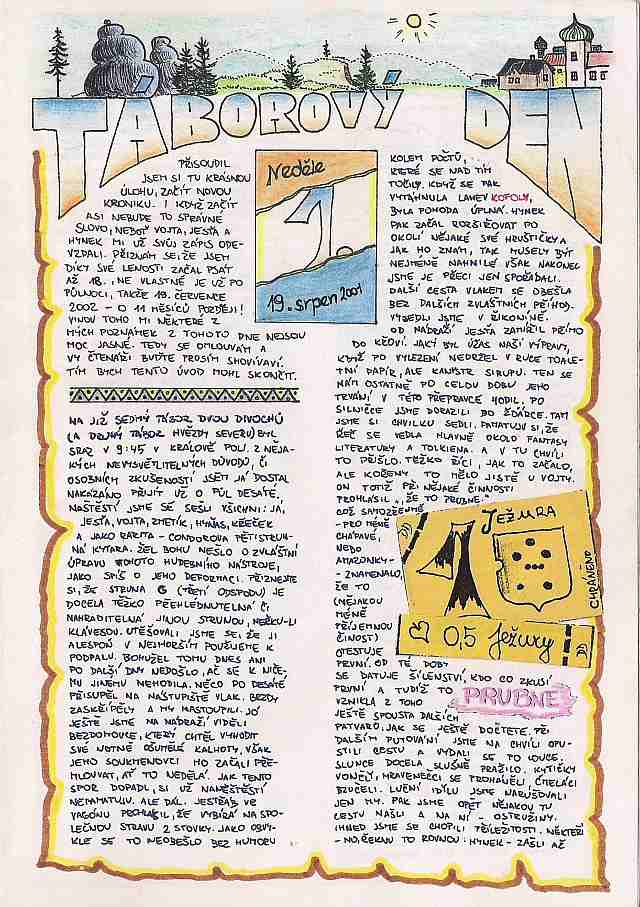 TÁBOROVÝ DEN
Neděle
1.
19. srpen 2001
PŘISOUDIL
JSEM SI TU KRÁSNOU
ÚLOHU, ZAČÍT NOVOU
KRONIKU. I KDYŽ ZAČÍT
ASI NEBUDE TO SPRÁVNÉ
SLOVO, NEBOŤ VOJTA, JESŤA A
HYNEK MI UŽ SVŮJ ZÁPIS ODE-
VZDALI. PŘIZNÁM SE, ŽE JSEM
DÍKY SVÉ LENOSTI ZAČAL PSÁT
AŽ 18., NE VLASTNĚ JE UŽ PO
PŮLNOCI, TAKŽE 19. ČERVENCE
2002 - O 11 MĚSÍCŮ POZDĚJI!
VINOU TOHO MI NĚKTERÉ Z
MÝCH POZNÁMEK Z TOHOTO DNE NEJSOU
MOC JASNÉ. TEDY SE OMLOUVÁM A
VY ČTENÁŘI BUĎTE PROSÍM SHOVÍVAVÍ.
TÍM BYCH TENTO ÚVOD MOHL SKONČIT.
NA JIŽ SEDMÝ TÁBOR DVOU DIVOCHŮ
(A DRUHÝ TÁBOR HVĚZDY SEVERU) BYL
SRAZ V 9:45 V KRÁLOVĚ POLI. Z NĚJA-
KÝCH NEVYSVĚTLITELNÝCH DŮVODŮ, ČI
OSOBNÍCH ZKUŠENOSTÍ JSEM JÁ DOSTAL
NAKÁZÁNO PŘIJÍT UŽ O PŮL DESÁTÉ.
NAŠTĚSTÍ JSME SE SEŠLI VŠICHNI: JÁ,
JESŤA, VOJTA, ZMETÍK, HYŇAS, KŘEČEK
A JAKO RARITA - CONDOROVA PĚTISTRUN-
NÁ KYTARA. ŽEL BOHU NEŠLO O ZVLÁŠTNÍ
ÚPRAVU TOHOTO HUDEBNÍHO NÁSTROJE,
JAKO SPÍŠ O JEHO DEFORMACI. PŘIZNEJTE
SI, ŽE STRUNA G (TŘETÍ ODSPODU) JE
DOCELA TĚŽKO PŘEHLÉDNUTELNÁ ČI
NAHRADITELNÁ JINOU STRUNOU, NEŘKU-LI
KLÁVESOU. UTĚŠOVALI JSME SE, ŽE JI
ALESPOŇ V NEJHORŠÍM POUŽIJEME K
PODPALU. BOHUŽEL TOMU DNES ANI
PO DALŠÍ DNY NEDOŠLO, AČ SE K NIČE-
MU JINÉMU NEHODILA. NĚCO PO DESÁTÉ
PŘISUPĚL NA NÁSTUPIŠTĚ VLAK. BRZDY
ZASKŘÍPĚLY A MY NASTOUPILI. JO
JEŠTĚ JSME NA NÁDRAŽÍ VIDĚLI
BEZDOMOVCE, KTERÝ CHTĚL VYHODIT
SVÉ NOTNĚ OŠUMĚLÉ KALHOTY, VŠAK
JEHO SOUKMENOVCI HO ZAČALI PŘE-
MLOUVAT, AŤ TO NEDĚLÁ. JAK TENTO
SPOR DOPADL, SI UŽ NANEŠTĚSTÍ
NEPAMATUJU. ALE DÁL. JESTŘÁB VE
VAGÓNU PROHLÁSIL, ŽE VYBÍRÁ NA SPO-
LEČNOU STRAVU 2 STOVKY. JAKO OBVY-
KLE SE TO NEOBEŠLO BEZ HUMORU
KOLEM POČTŮ,
KTERÉ SE NAD TÍM
TOČILY. KDYŽ SE PAK
VYTÁHNULA LAHEV KOFOLY,
BYLA POHODA ÚPLNÁ. HYNEK
PAK ZAČAL ROZŠIŘOVAT PO
OKOLÍ NĚJAKÉ SVÉ HRUŠTIČKY A
JAK HO ZNÁM, TAK MUSELY BÝT
NEJMÉNĚ NAHNILÉ VŠAK NAKONEC
JSME JE PŘECI JEN SPOŘÁDALI.
DALŠÍ CESTA VLAKEM SE OBEŠLA
BEZ DALŠÍCH ZVLÁŠTNÍCH PŘÍHOD.
VYSEDLI JSME V ŘIKONÍNĚ.
OD NÁDRAŽÍ JESŤA ZAMÍŘIL PŘÍMO
DO KŘOVÍ. JAKÝ BYL ÚŽAS NAŠÍ VÝPRAVY,
KDYŽ PO VYLEZENÍ NEDRŽEL V RUCE TOALE-
TNÍ PAPÍR, ALE KANYSTR SIRUPU. TEN SE
NÁM OSTATNĚ PO CELOU DOBU JEHO
TRVÁNÍ V TÉTO PŘEPRAVCE HODIL. PO
SILNIČCE JSME DORAZILI DO ŽĎÁRCE. TAM
JSME SI CHVILKU SEDLI. PAMATUJU SI, ŽE
ŘEČ SE VEDLA HLAVNĚ OKOLO FANTASY
LITERATURY A TOLKIENA. A V TU CHVÍLI
TO PŘIŠLO. TĚŽKO ŘÍCI, JAK TO ZAČALO,
ALE KOŘENY TO MĚLO JISTĚ U VOJTY.
ON TOTIŽ PŘI NĚJAKÉ ČINNOSTI
PROHLÁSIL „ŽE TO PRUBNE."
COŽ SAMOZŘEJMĚ
- PRO MÉNĚ
CHÁPAVÉ,
NEBO
AMAZONKY -
- ZNAMENALO,
ŽE TO
(NĚJAKOU
MÉNĚ
PŘÍJEMNOU
ČINNOST)
OTESTUJE
PRVNÍ. OD TÉ DOBY
SE DATUJE ŠÍLENSTVÍ, KDO CO ZKUSÍ
PRVNÍ A TUDÍŽ TO PRUBNE!
VZNIKLA Z TOHO
JEŠTĚ SPOUSTA DALŠÍCH
PATVARŮ, JAK SE JEŠTĚ DOČTETE. PŘI
DALŠÍM PUTOVÁNÍ JSME NA CHVÍLI OPU-
STILI CESTU A VYDALI SE PO LOUCE.
SLUNCE DOCELA SLUŠNĚ PRAŽILO. KYTIČKY
VONĚLY, MRAVENEČCI SE PROHÁNĚLI, ČMELÁCI
BZUČELI. LUČNÍ IDYLU JSME NARUŠOVALI
JEN MY. PAK JSME OPĚT NĚJAKOU TU
CESTU NAŠLI A NA NÍ - OSTRUŽINY.
IHNED JSME SE CHOPILI PŘÍLEŽITOSTI. NĚKTEŘÍ
- NO, ŘEKNU TO ROVNOU: HYNEK - ZAŠLI AŽ
JEŽURA
CHRÁNĚNO
0,5 Ježury